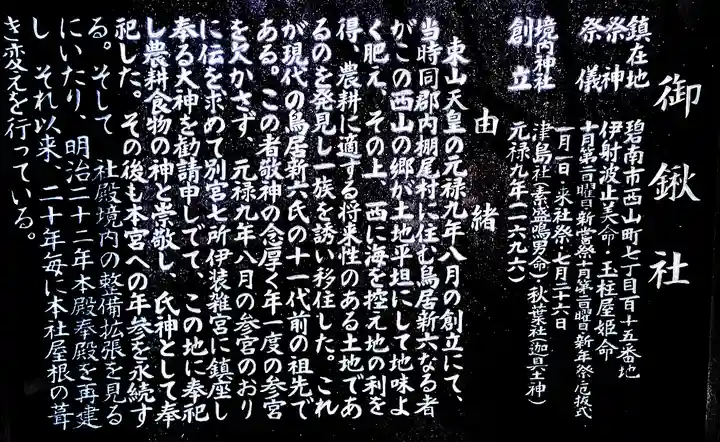 御鍬社
鎮在地 碧南市西山町七丁目百十五番地
祭神 伊射波止美命・玉柱屋姫命
祭儀 十月第二日曜日・新嘗祭・十月第二日曜日・新年祭・厄祓式・
一月一日・末社祭・七月二十六日
境内神社 津島社(素盛鳴男命)秋葉社(迦具土神)
創立 元禄九年(一六九六)
由緒
東山天皇の元禄九年八月の創立にて、
当時同郡内棚尾村に住む鳥居新六なる者
がこの西山の郷が土地平坦にして地味よ
く肥え、その上、西に海を控え地の利を
得、農耕に適する将来性のある土地であ
るのを発見し一族を誘い移住した。これ
が現代の鳥居新六氏の十一代前の祖先で
ある。この者敬神の念厚く年一度の参宮
を欠かさず、元禄九年八月の参宮のおり
に伝を求めて別宮七所伊装雑宮に鎮座し
奉る大神を勧請申しでて、この地に奉祀
し農耕食物の神と崇敬し、氏神として奉
祀した。その後も本宮への年参を永続す
る。そして 社殿境内の整備拡張を見る
にいたり、明治二十二年本殿奉殿を再建
し それ以来、二十年毎に本社屋根の葺
き変えを行っている。